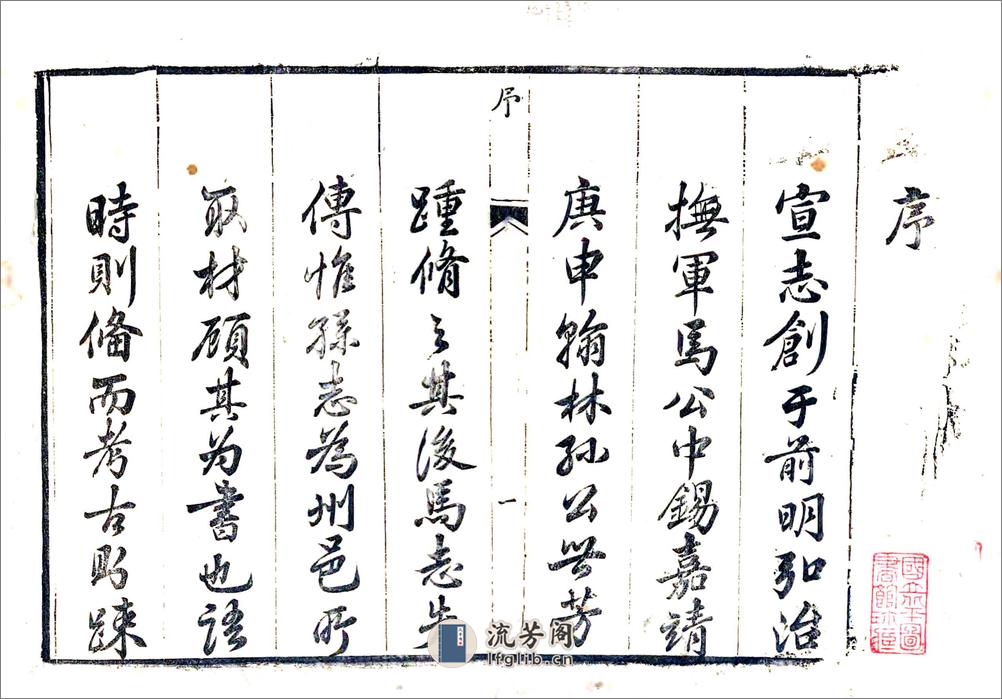 序
宣志創于前明弘治
撫軍馬公中錫嘉靖
庚申翰林孙公世芳
序
一
踵脩之其後馬志失
傳惟孫志為州邑所
取材顧其為書也語
時則備而考古則踈
流芳阁
lfglib.cn